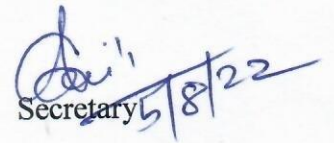 Secretary 5/8/22